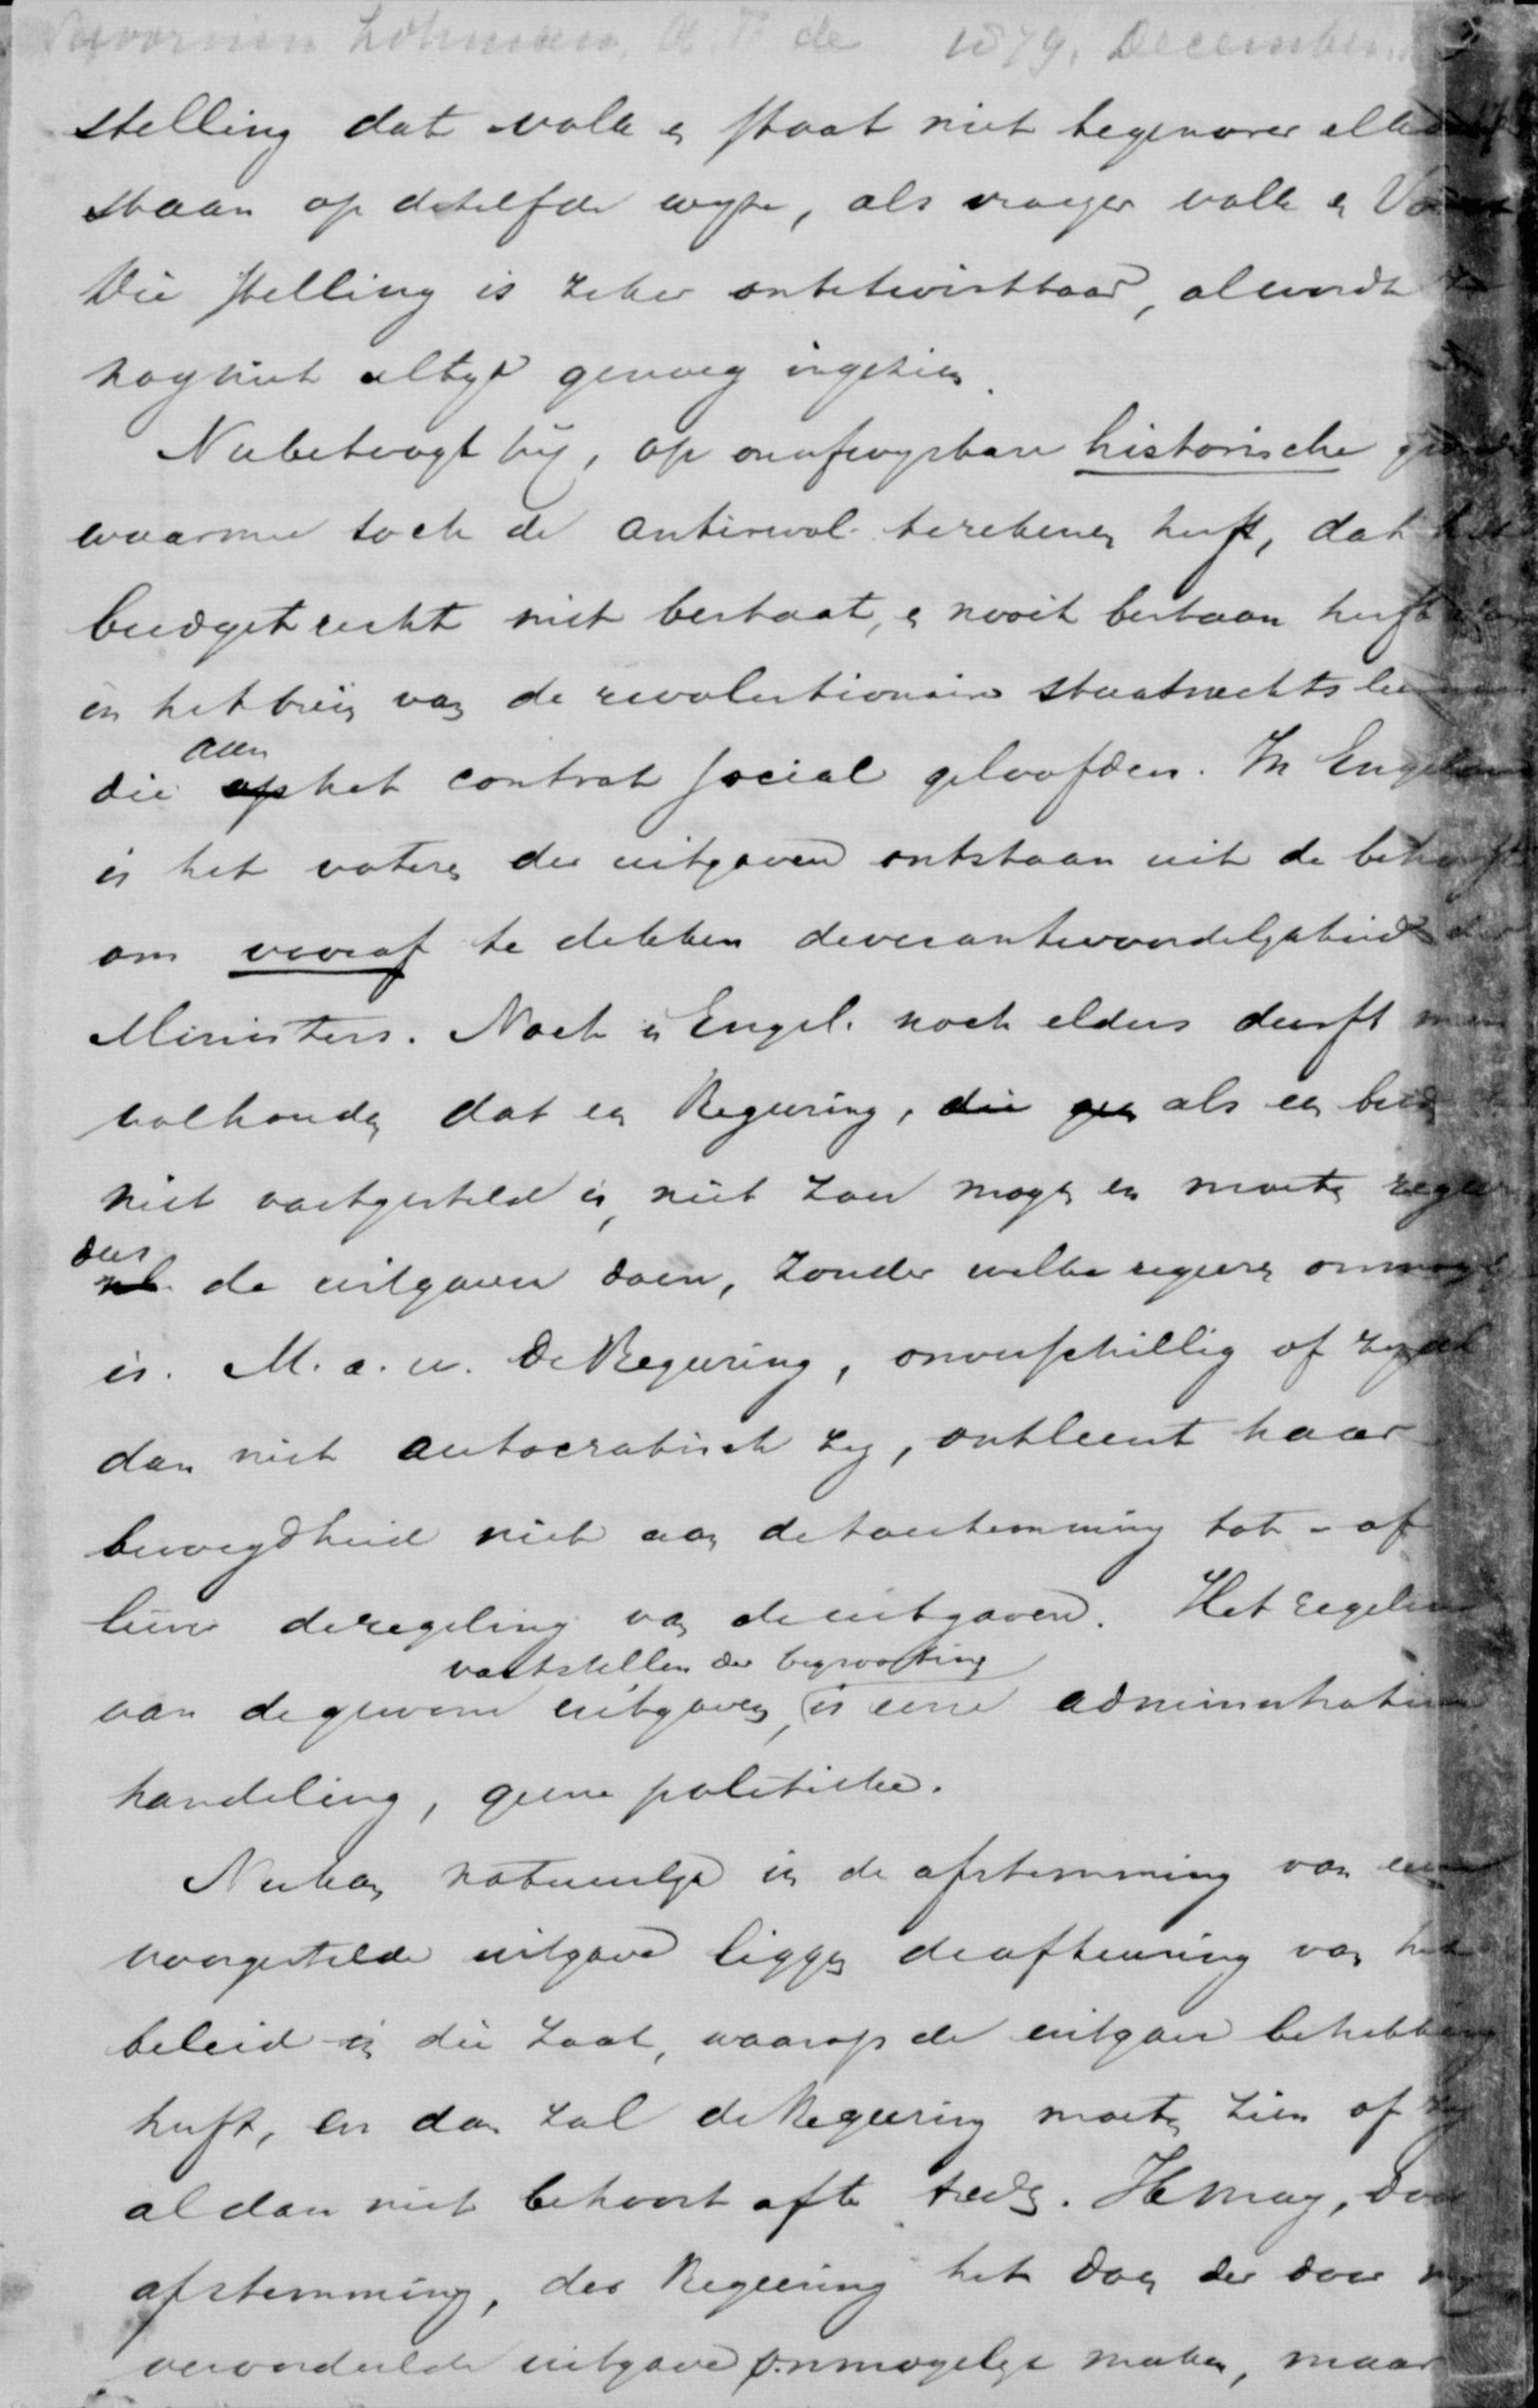 Savornin Lohman, A. F. de 1879, December
stelling dat volk en staat niet tegenover elkaar
staan op dezelfde wyze, als vroeger volk en
Die stelling is zeker onbetwistbaar, al wordt
nog niet altyd genoeg ingezien.
Nu betoogt hij, op onafwysbare historische
waarmee toch de antirevol. te rekenen heeft, dat het
budgetrecht niet bestaat, en nooit bestaan heeft dan
in het brein van de revolutionaire staatsrechtsleeraren
die aan het contrat social geloofden. In Engeland
is het voteren der uitgaven ontstaan uit de behoefte
om vooraf te dekken de verantwoordelykheid der
Ministers. Noch in Engel. noch elders durft men
volhouden dat een Regeering, die geen als een
niet vastgesteld is, niet zou mogen en moeten regeeren
dus de uitgaven doen, zonder welke regeeren onmogelyk
is. M. a. w. De Regeering, onverschillig of zy al
dan niet autocratisch zy, ontleent haar
bevoegdheid niet aan de toestemming tot - of
liever de regeling van de uitgaven. Het regelen
vaststellen der begrooting
van de gewone uitgaven, is eene administratieve
handeling, geene politieke.
Nu kan natuurlyk in de afstemming van eene
voorgestelde uitgave liggen de afkeuring van het
beleid in die zaak, waarop de uitgave betrekking
heeft, en dan zal de Regeering moeten zien of zy
al dan niet behoort af te treden. De Kmag, door
afstemming, der Regeering het doen der door
veroordeelde uitgave onmogelyk maken, maar